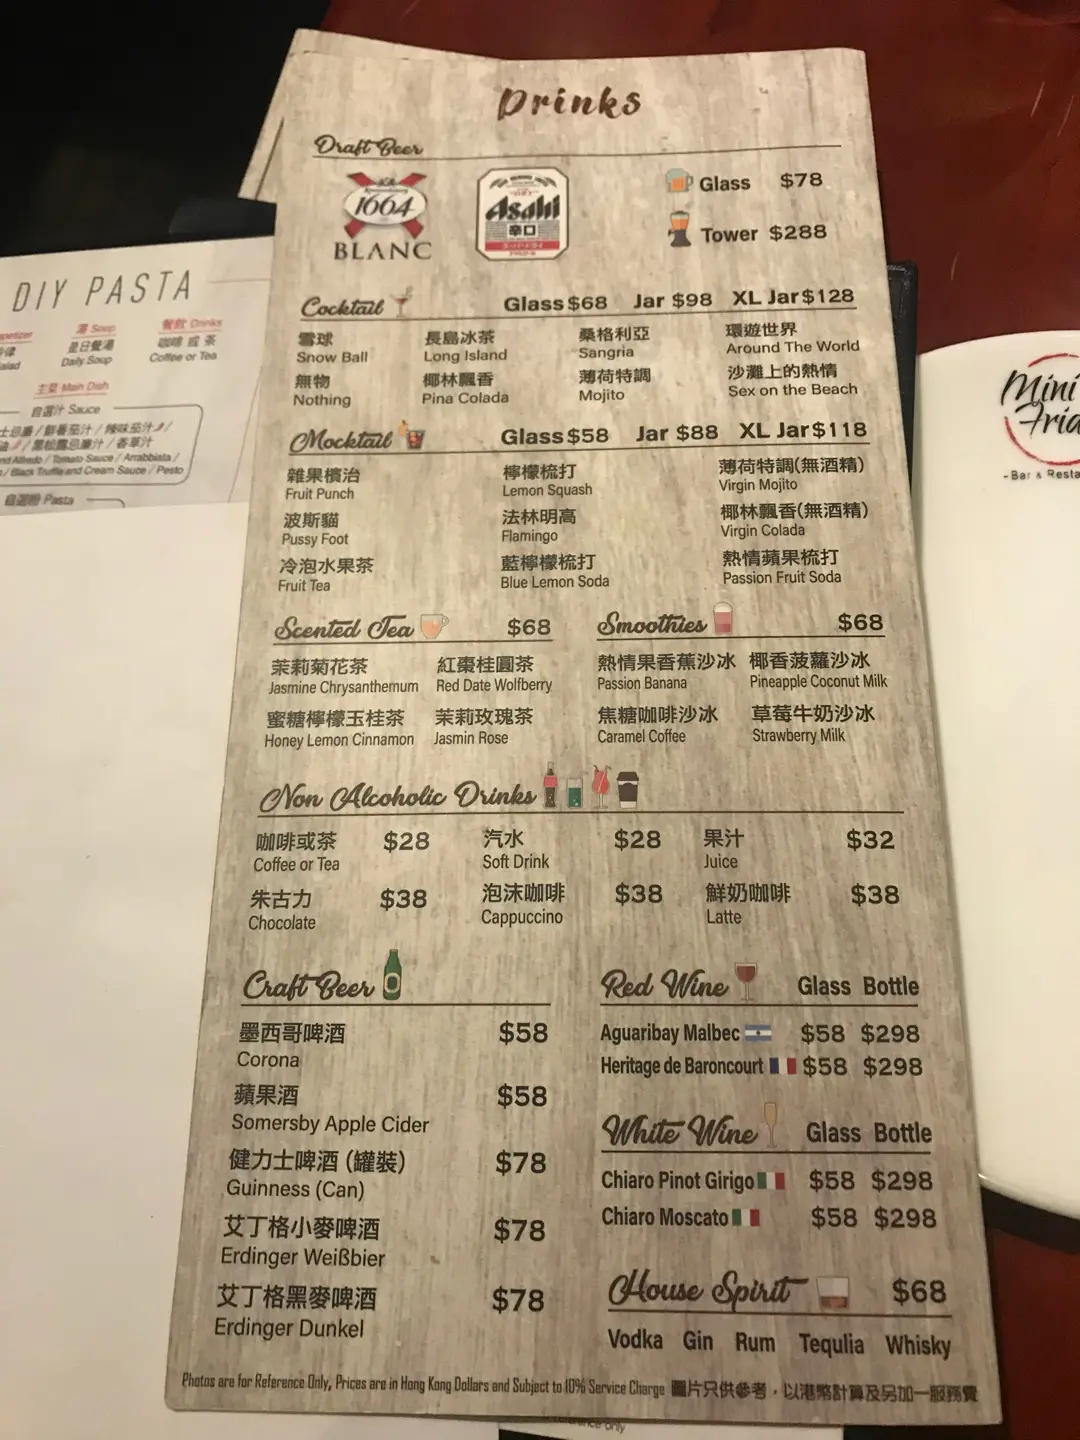 Drinks
Draft Beer
1664
BLANC
Asahi
辛口
Glass $78
Tower $288
Cocktail Glass $68 Jar $98 XL Jar $128
雪球 長島冰茶 桑格利亞 環遊世界
Snow Ball Long Island Sangria Around The World
無物 椰林飄香 薄荷特調 沙灘上的熱情
Nothing Pina Colada Mojito Sex on the Beach
Mocktail Glass $58 Jar $88 XL Jar $118
雜果檳治 檸檬梳打 薄荷特調(無酒精)
Fruit Punch Lemon Squash Virgin Mojito
波斯貓 法林明高 椰林飄香(無酒精)
Pussy Foot Flamingo Virgin Colada
冷泡水果茶 藍檸檬梳打 熱情蘋果梳打
Fruit Tea Blue Lemon Soda Passion Fruit Soda
Scented Tea $68
茉莉菊花茶 紅棗桂圓茶
Jasmine Chrysanthemum Red Date Wolfberry
蜜糖檸檬玉桂茶 茉莉玫瑰茶
Honey Lemon Cinnamon Jasmin Rose
Smoothies $68
熱情果香蕉沙冰 椰香菠蘿沙冰
Passion Banana Pineapple Coconut Milk
焦糖咖啡沙冰 草莓牛奶沙冰
Caramel Coffee Strawberry Milk
Non Alcoholic Drinks
咖啡或茶 $28 汽水 $28 果汁 $32
Coffee or Tea Soft Drink Juice
朱古力 $38 泡沫咖啡 $38 鮮奶咖啡 $38
Chocolate Cappuccino Latte
Craft Beer
墨西哥啤酒 $58
Corona
蘋果酒 $58
Somersby Apple Cider
健力士啤酒 (罐裝) $78
Guinness (Can)
艾丁格小麥啤酒 $78
Erdinger Weißbier
艾丁格黑麥啤酒 $78
Erdinger Dunkel
Red Wine Glass Bottle
Aguaribay Malbec $58 $298
Heritage de Baroncourt $58 $298
White Wine Glass Bottle
Chiaro Pinot Girigo $58 $298
Chiaro Moscato $58 $298
House Spirit $68
Vodka Gin Rum Tequlia Whisky
Photos are for Reference Only, Prices are in Hong Kong Dollars and Subject to 10% Service Charge 圖片只供參考，以港幣計算及另加一服務費
DIY PASTA
湯 Soup 餐飲 Drinks
是日餐湯 咖啡 或 茶
Daily Soup Coffee or Tea
主菜 Main Dish
自選汁 Sauce
士忌廉 / 鮮番茄汁 / 辣味茄汁 /
/ 黑松露忌廉汁 / 香草汁
Alfredo / Tomato Sauce / Arrabbiata /
/ Black Truffle and Cream Sauce / Pesto
自選粉 Pasta
Mini
- Bar &